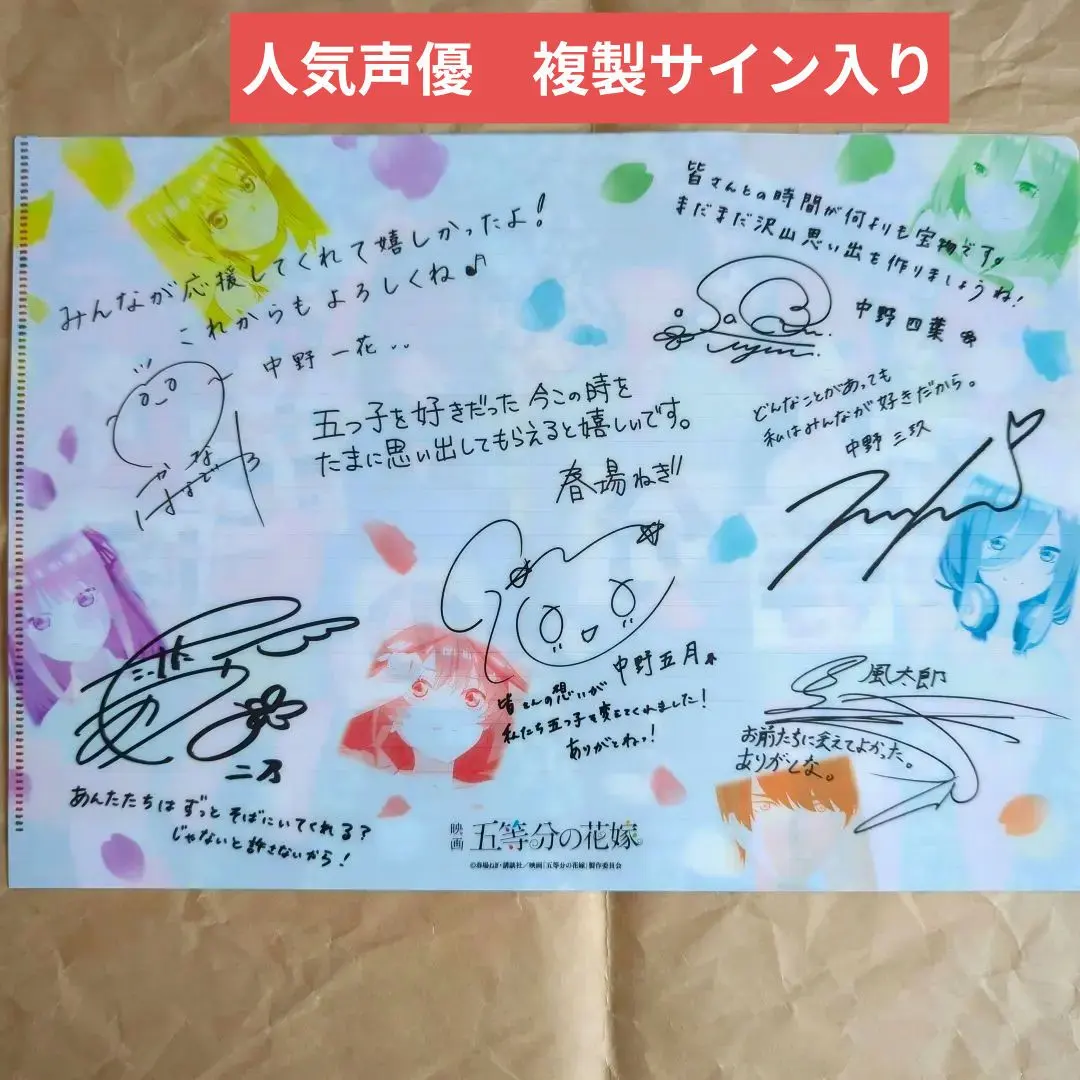 人気声優　複製サイン入り
みんなが応援してくれて嬉しかったよ!
これからもよろしくね♪
中野 一花
かな
はなざわ
皆さんとの時間が何よりも宝物です。
まだまだ沢山思い出を作りましょうね!
中野四葉
五つ子を好きだった 今この時を
たまに思い出してもらえると嬉しいです。
春場ねぎ
どんなことがあっても
私はみんなが好きだから。
中野 三玖
中野五月
皆さんの想いが
私たち五つ子を変えてくれました!
ありがとねっ!
二乃
あんたたちは ずっと そばにいてくれる?
じゃないと許さないから!
風太郎
お前たちに会えてよかった。
ありがとな。
映画 五等分の花嫁
©春場ねぎ・講談社/映画「五等分の花嫁」製作委員会